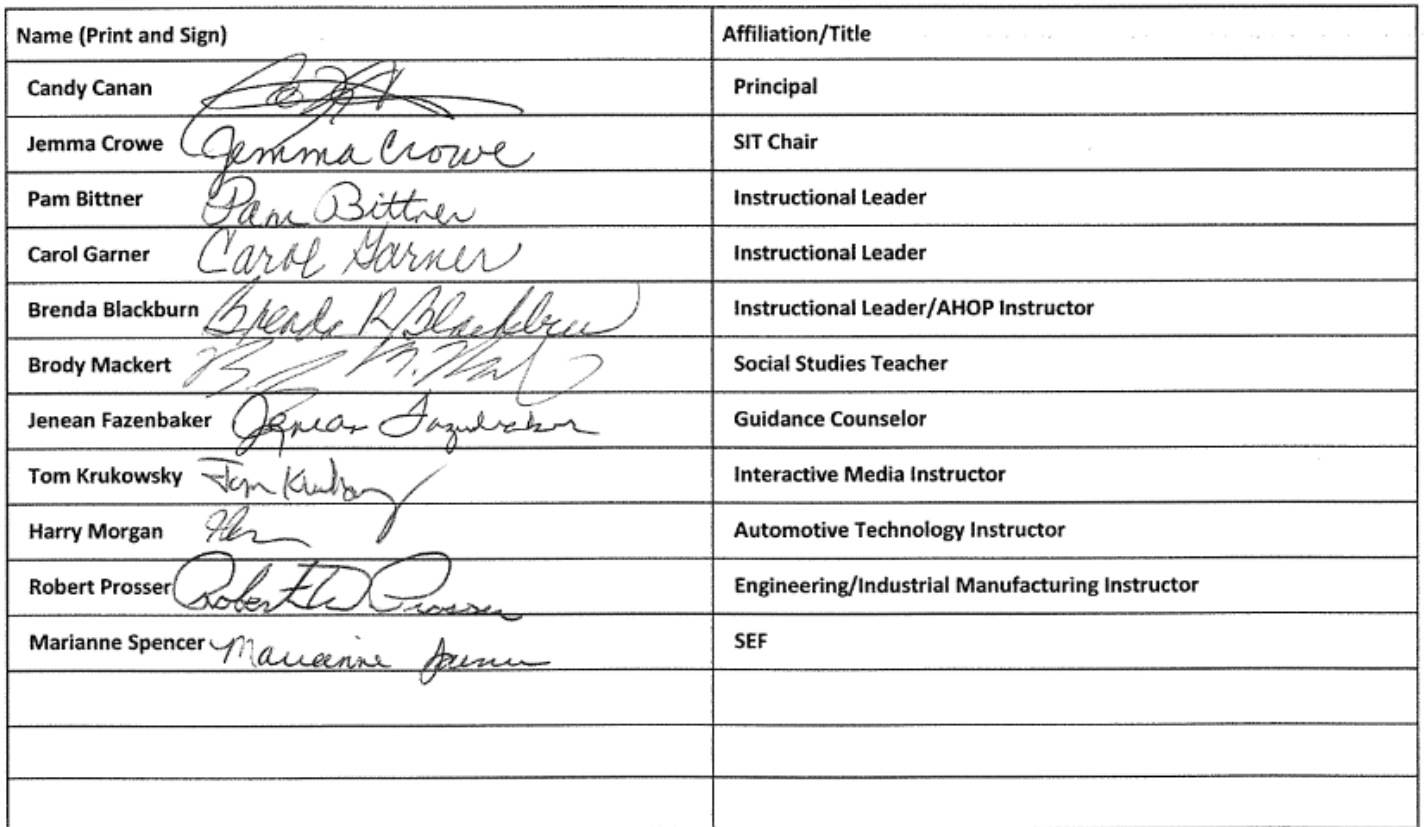 Name (Print and Sign) Affiliation/Title
Candy Canan Principal
Jemma Crowe Jemma Crowe SIT Chair
Pam Bittner Pam Bittner Instructional Leader
Carol Garner Carol Garner Instructional Leader
Brenda Blackburn Brenda R Blackburn Instructional Leader/AHOP Instructor
Brody Mackert Social Studies Teacher
Jenean Fazenbaker Jenean Fazenbaker Guidance Counselor
Tom Krukowsky Tom Krukowsky Interactive Media Instructor
Harry Morgan Automotive Technology Instructor
Robert Prosser Robert W Prosser Engineering/Industrial Manufacturing Instructor
Marianne Spencer Marianne Spencer SEF